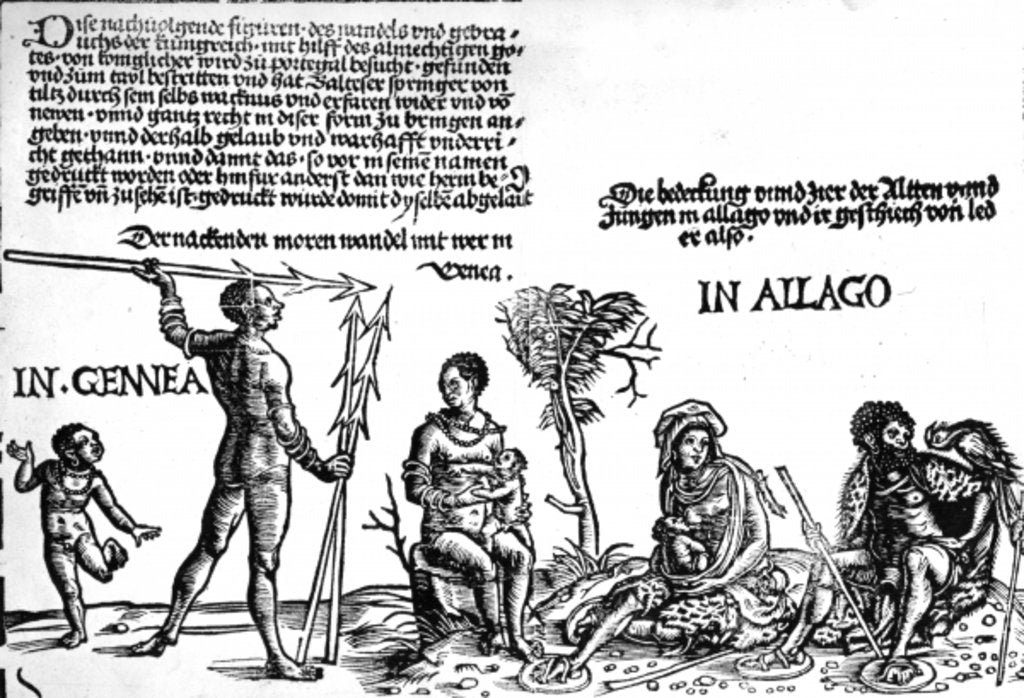 Dise nachuolgende figuren· des wandels vnd gebra-
uchs der kumgreich· mit hilff des almechtigen go-
tes· von komglicher wird zu portegal besucht· gefunden
vnd zum tayl bestritten vnd hat Balteser springer von
viltz durch sem selbs
vnd erfaren wider vnd võ
newen· vnnd gantz recht in diser form zu bringen an-
geben· vnnd derhalb gelaub vnd warhafft vnderri-
cht gethann· vnnd damit das· so vor in semẽ namen
gedruckt worden oder hinfur anderst dan wie herin be-
griffẽ vñ zusehẽ ist· gedruckt wurde domit dyselbẽ
Der nackenden moren wandel mit wer in
Genea.
Die bedeckung vnnd zier der Altten vnnd
Jungen in allago vnd ir geschiech von led
er also.
IN ALLAGO
IN·GENNEA